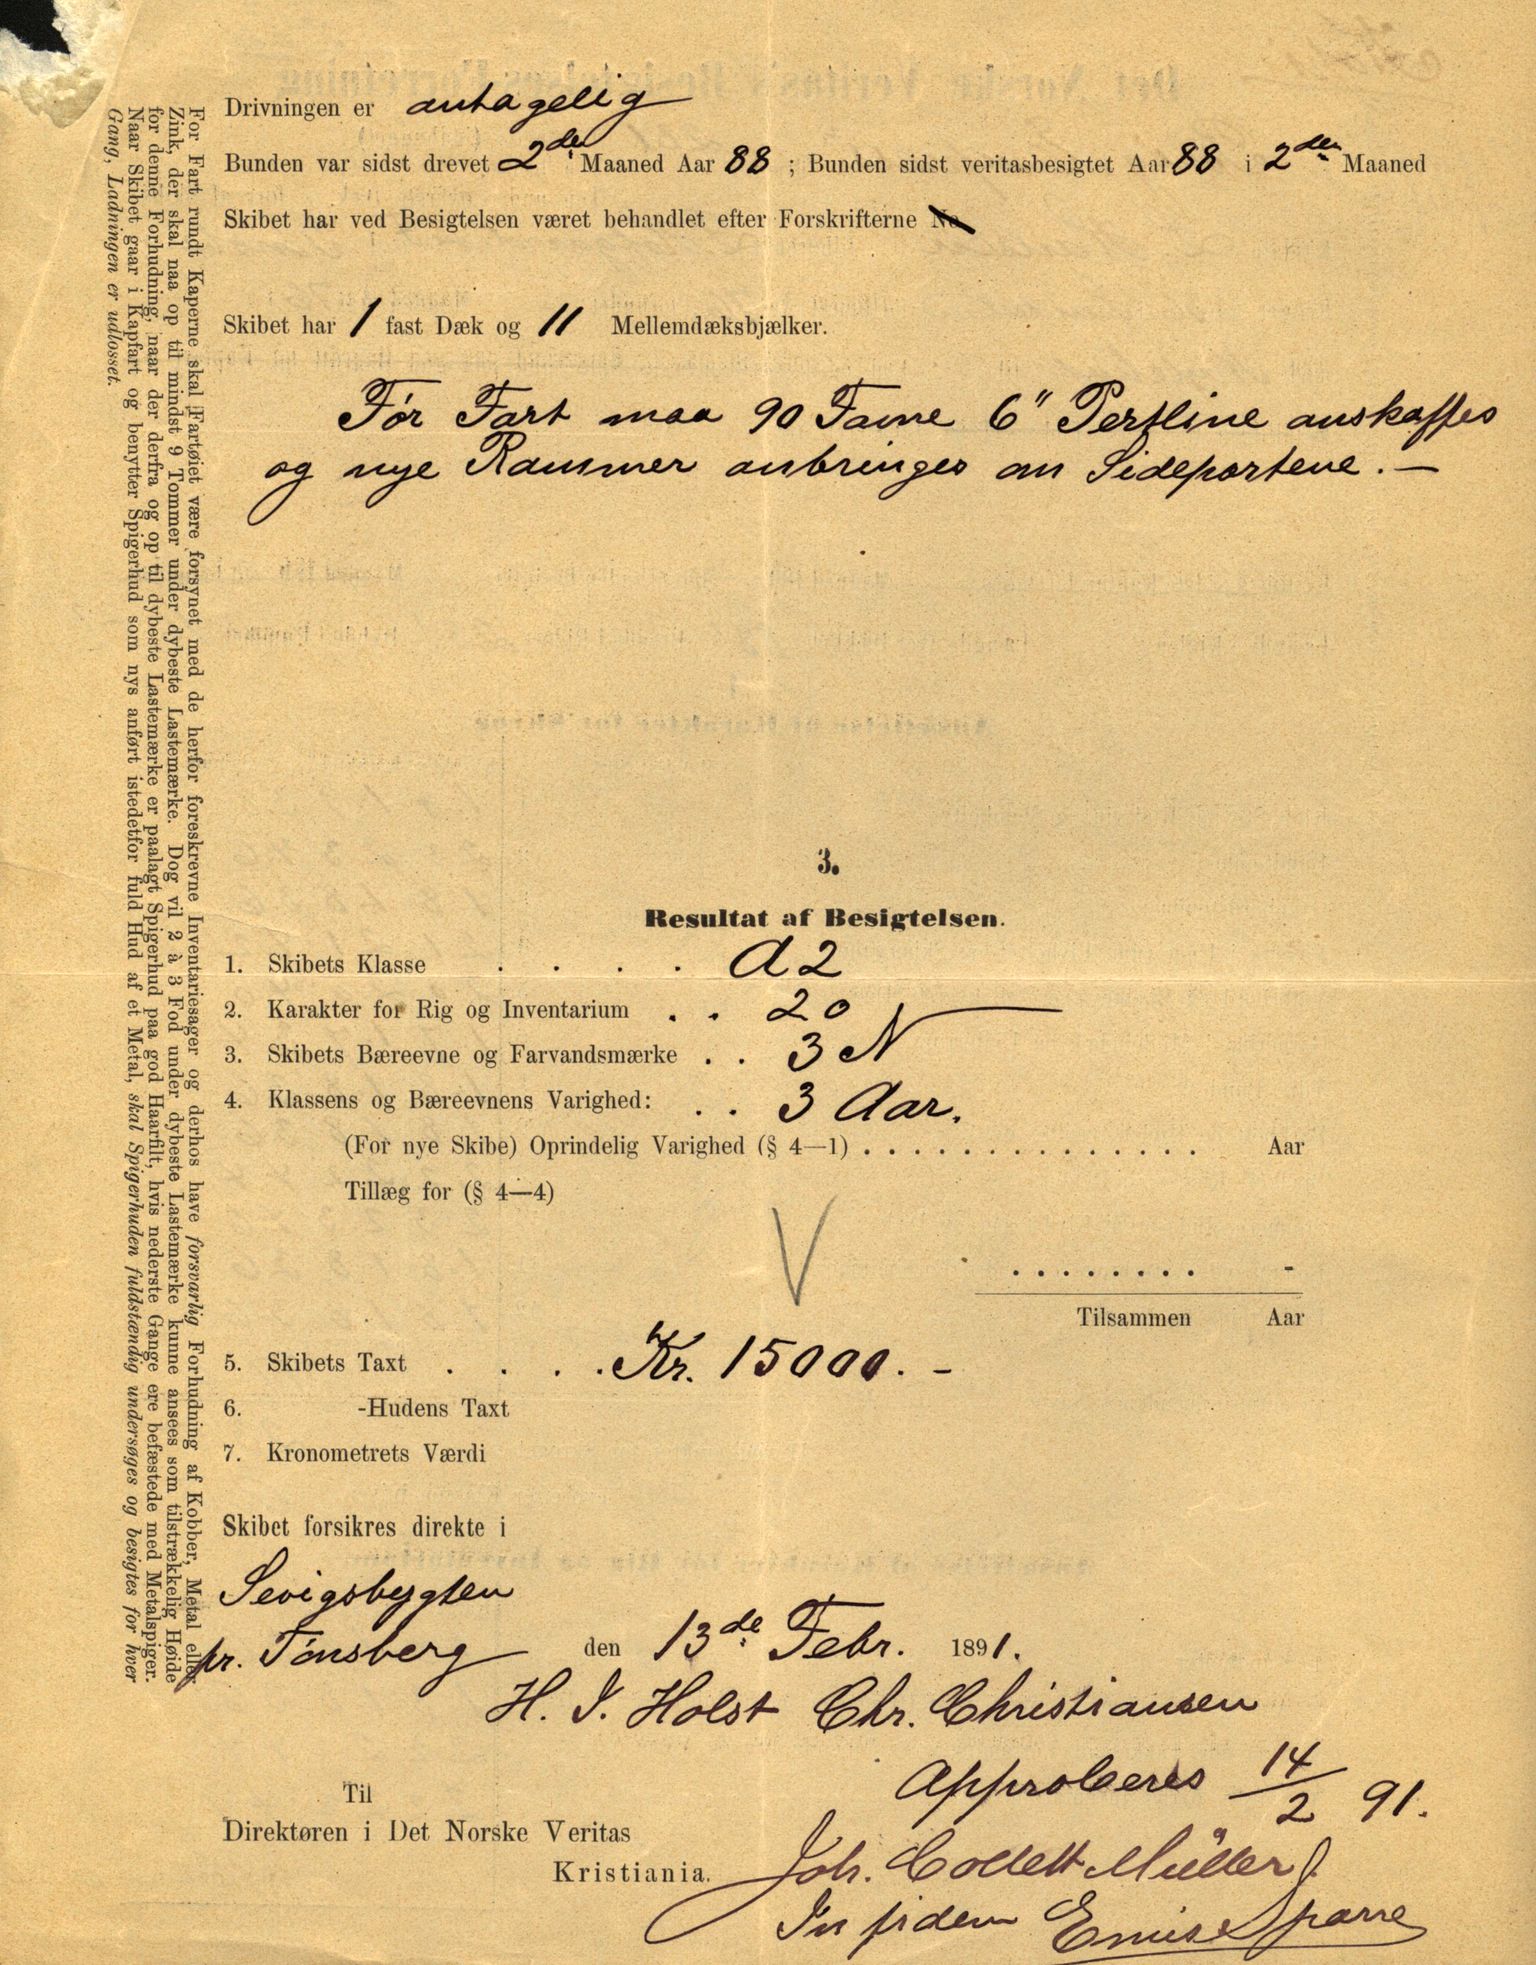 Drivningen er antagelig
Bunden var sidst drevet 2den Maaned Aar 88 ; Bunden sidst veritasbesigtet Aar 88 i 2den Maaned
Skibet har ved Besigtelsen været behandlet efter Forskrifterne No
Skibet har 1 fast Dæk og 11 Mellemdæksbjælker.
Før Fart maa 90 Favne 6" Pertline anskaffes
og nye Rammer anbringes om Sideportene. —
3.
Resultat af Besigtelsen.
1. Skibets Klasse . . . . A 2
2. Karakter for Rig og Inventarium . . 20
3. Skibets Bæreevne og Farvandsmærke . . 3 N
4. Klassens og Bæreevnens Varighed: . . 3 Aar.
(For nye Skibe) Oprindelig Varighed (§ 4—1) . . . . . . . . . . . . . . . Aar
Tillæg for (§ 4—4)
V
. . . . . . . . -
Tilsammen Aar
5. Skibets Taxt . . . . Kr. 15000. —
6. -Hudens Taxt
7. Kronometrets Værdi
Skibet forsikres direkte i
pr. Tønsberg den 13de Febr. 1891.
H. J. Holst Chr. Christiansen
Approberes 14/2 91.
Til
Direktøren i Det Norske Veritas
Kristiania.
Joh. Collett Müller
In fidem Emil Sparre
For Fart rundt Kaperne skal Fartøiet være forsynet med de herfor foreskrevne Inventariesager og derhos have forsvarlig Forhudning af Kobber, Metal eller
Zink, der skal naa op til mindst 9 Tommer under dybeste Lastemærke. Dog vil 2 à 3 Fod under dybeste Lastemærke kunne ansees som tilstrækkelig Høide
for denne Forhudning, naar der derfra og op til dybeste Lastemærke er paalagt Spigerhud paa god Haarfilt, hvis nederste Gange ere befæstede med Metalspiger.
Naar Skibet gaar i Kapfart og benytter Spigerhud som nys anført istedetfor fuld Hud af et Metal, skal Spigerhuden fuldstændig undersøges og besigtes for hver
Gang, Ladningen er udlosset.